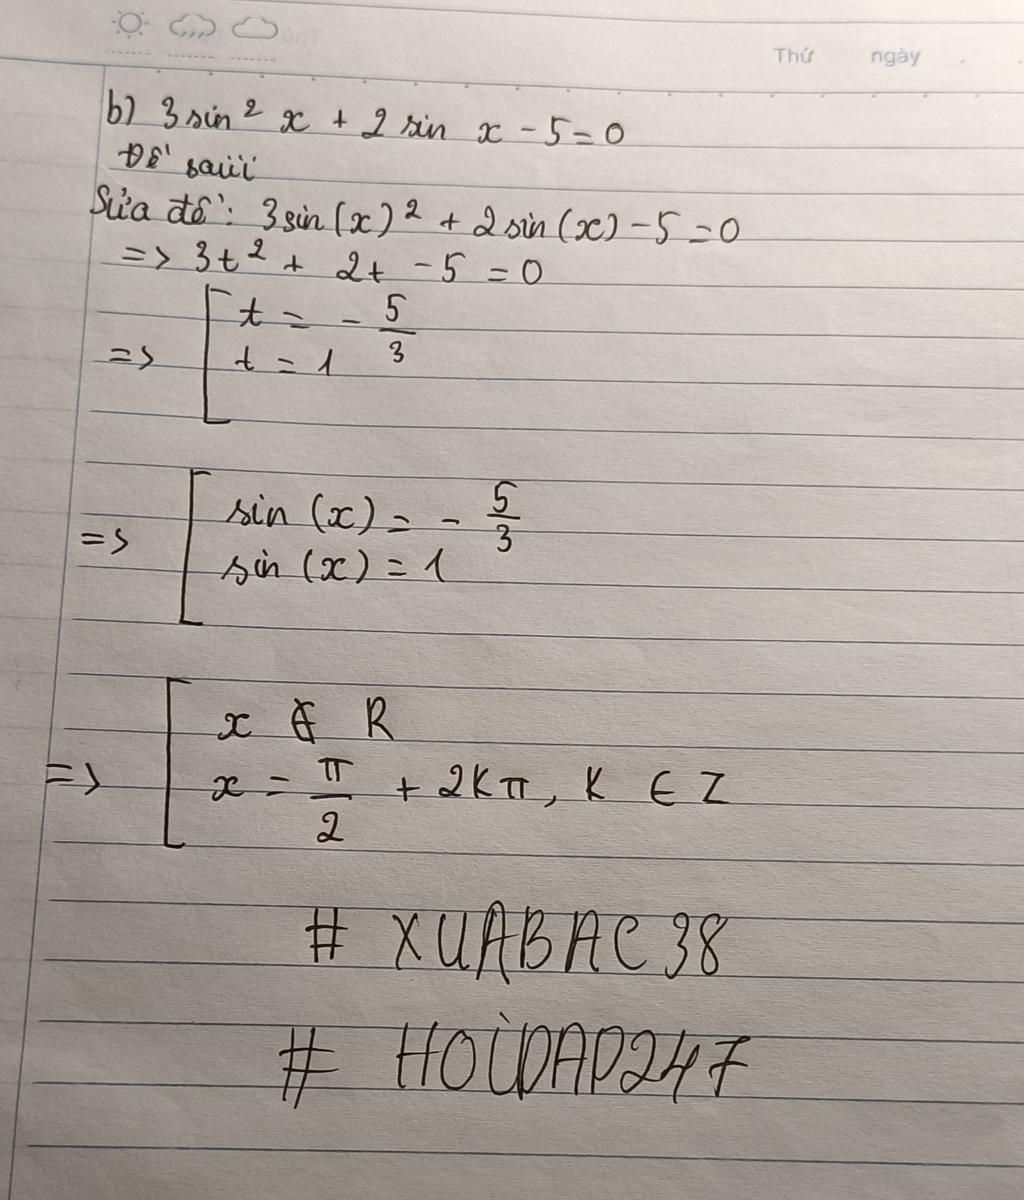 Thứ ngày
b) 3 sin² x + 2 sin x - 5 = 0
Đề saiii
Sửa đề: 3 sin (x)² + 2 sin (x) - 5 = 0
=> 3t² + 2t - 5 = 0
=> [ t = - 5/3
t = 1
=> [ sin (x) = - 5/3
sin (x) = 1
=> [ x ∉ R
x = π/2 + 2Kπ, K ∈ Z
# XUABAC38
# HOIDAP247